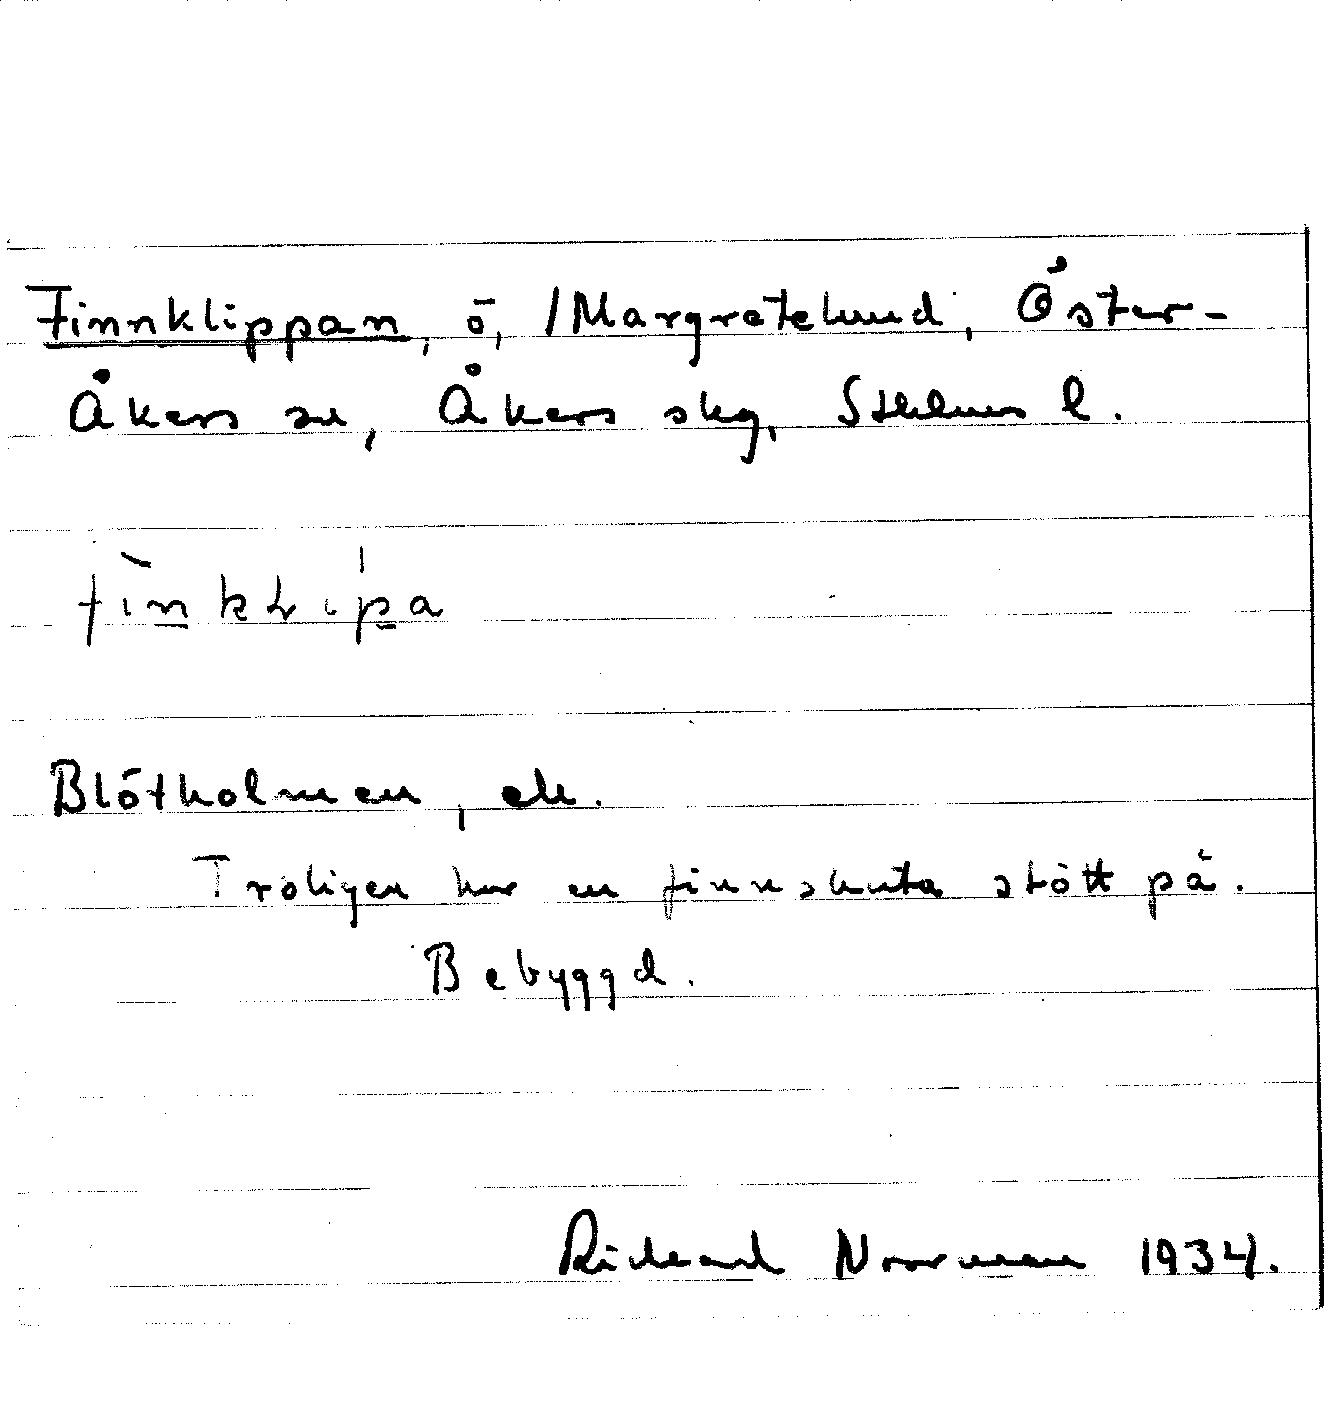 Finnklippan, ö, /Margretelund, Öster-
Åkers sn, Åkers skg, Sthlms l.
fìnklıp̍a
Blötholmen, ek.
Troligen har en finnskuta stött på.
Bebyggd.
Richard Norrman 1934.